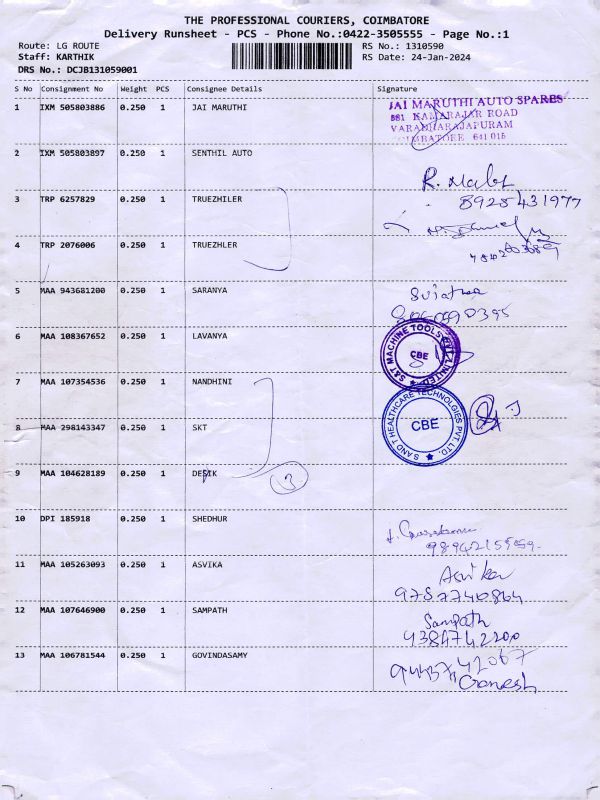 THE PROFESSIONAL COURIERS, COIMBATORE
Delivery Runsheet - PCS - Phone No.:0422-3505555 - Page No.:1
Route: LG ROUTE RS No.: 1310590
Staff: KARTHIK RS Date: 24-Jan-2024
DRS No.: DCJB131059001
S No Consignment No Weight PCS Consignee Details Signature
1 IXM 505803886 0.250 1 JAI MARUTHI
JAI MARUTHI AUTO SPARES
881 KAMARAJAR ROAD
VARADHARAJAPURAM
COIMBATORE 641 015
2 IXM 505803897 0.250 1 SENTHIL AUTO
3 TRP 6257829 0.250 1 TRUEZHILER
8925431977
4 TRP 2076006 0.250 1 TRUEZHLER
5 MAA 943681200 0.250 1 SARANYA
6 MAA 108367652 0.250 1 LAVANYA
S&T MACHINE TOOLS PVT LIMITED
CBE
7 MAA 107354536 0.250 1 NANDHINI
8 MAA 298143347 0.250 1 SKT
S AND T HEALTHCARE TECHNOLGIES PVT. LTD.
CBE
9 MAA 104628189 0.250 1 DESIK
3
10 DPI 185918 0.250 1 SHEDHUR
11 MAA 105263093 0.250 1 ASVIKA
Asvika
9787740864
12 MAA 107646900 0.250 1 SAMPATH
Sampath
9384742200
13 MAA 106781544 0.250 1 GOVINDASAMY
9443742067
Ganesh